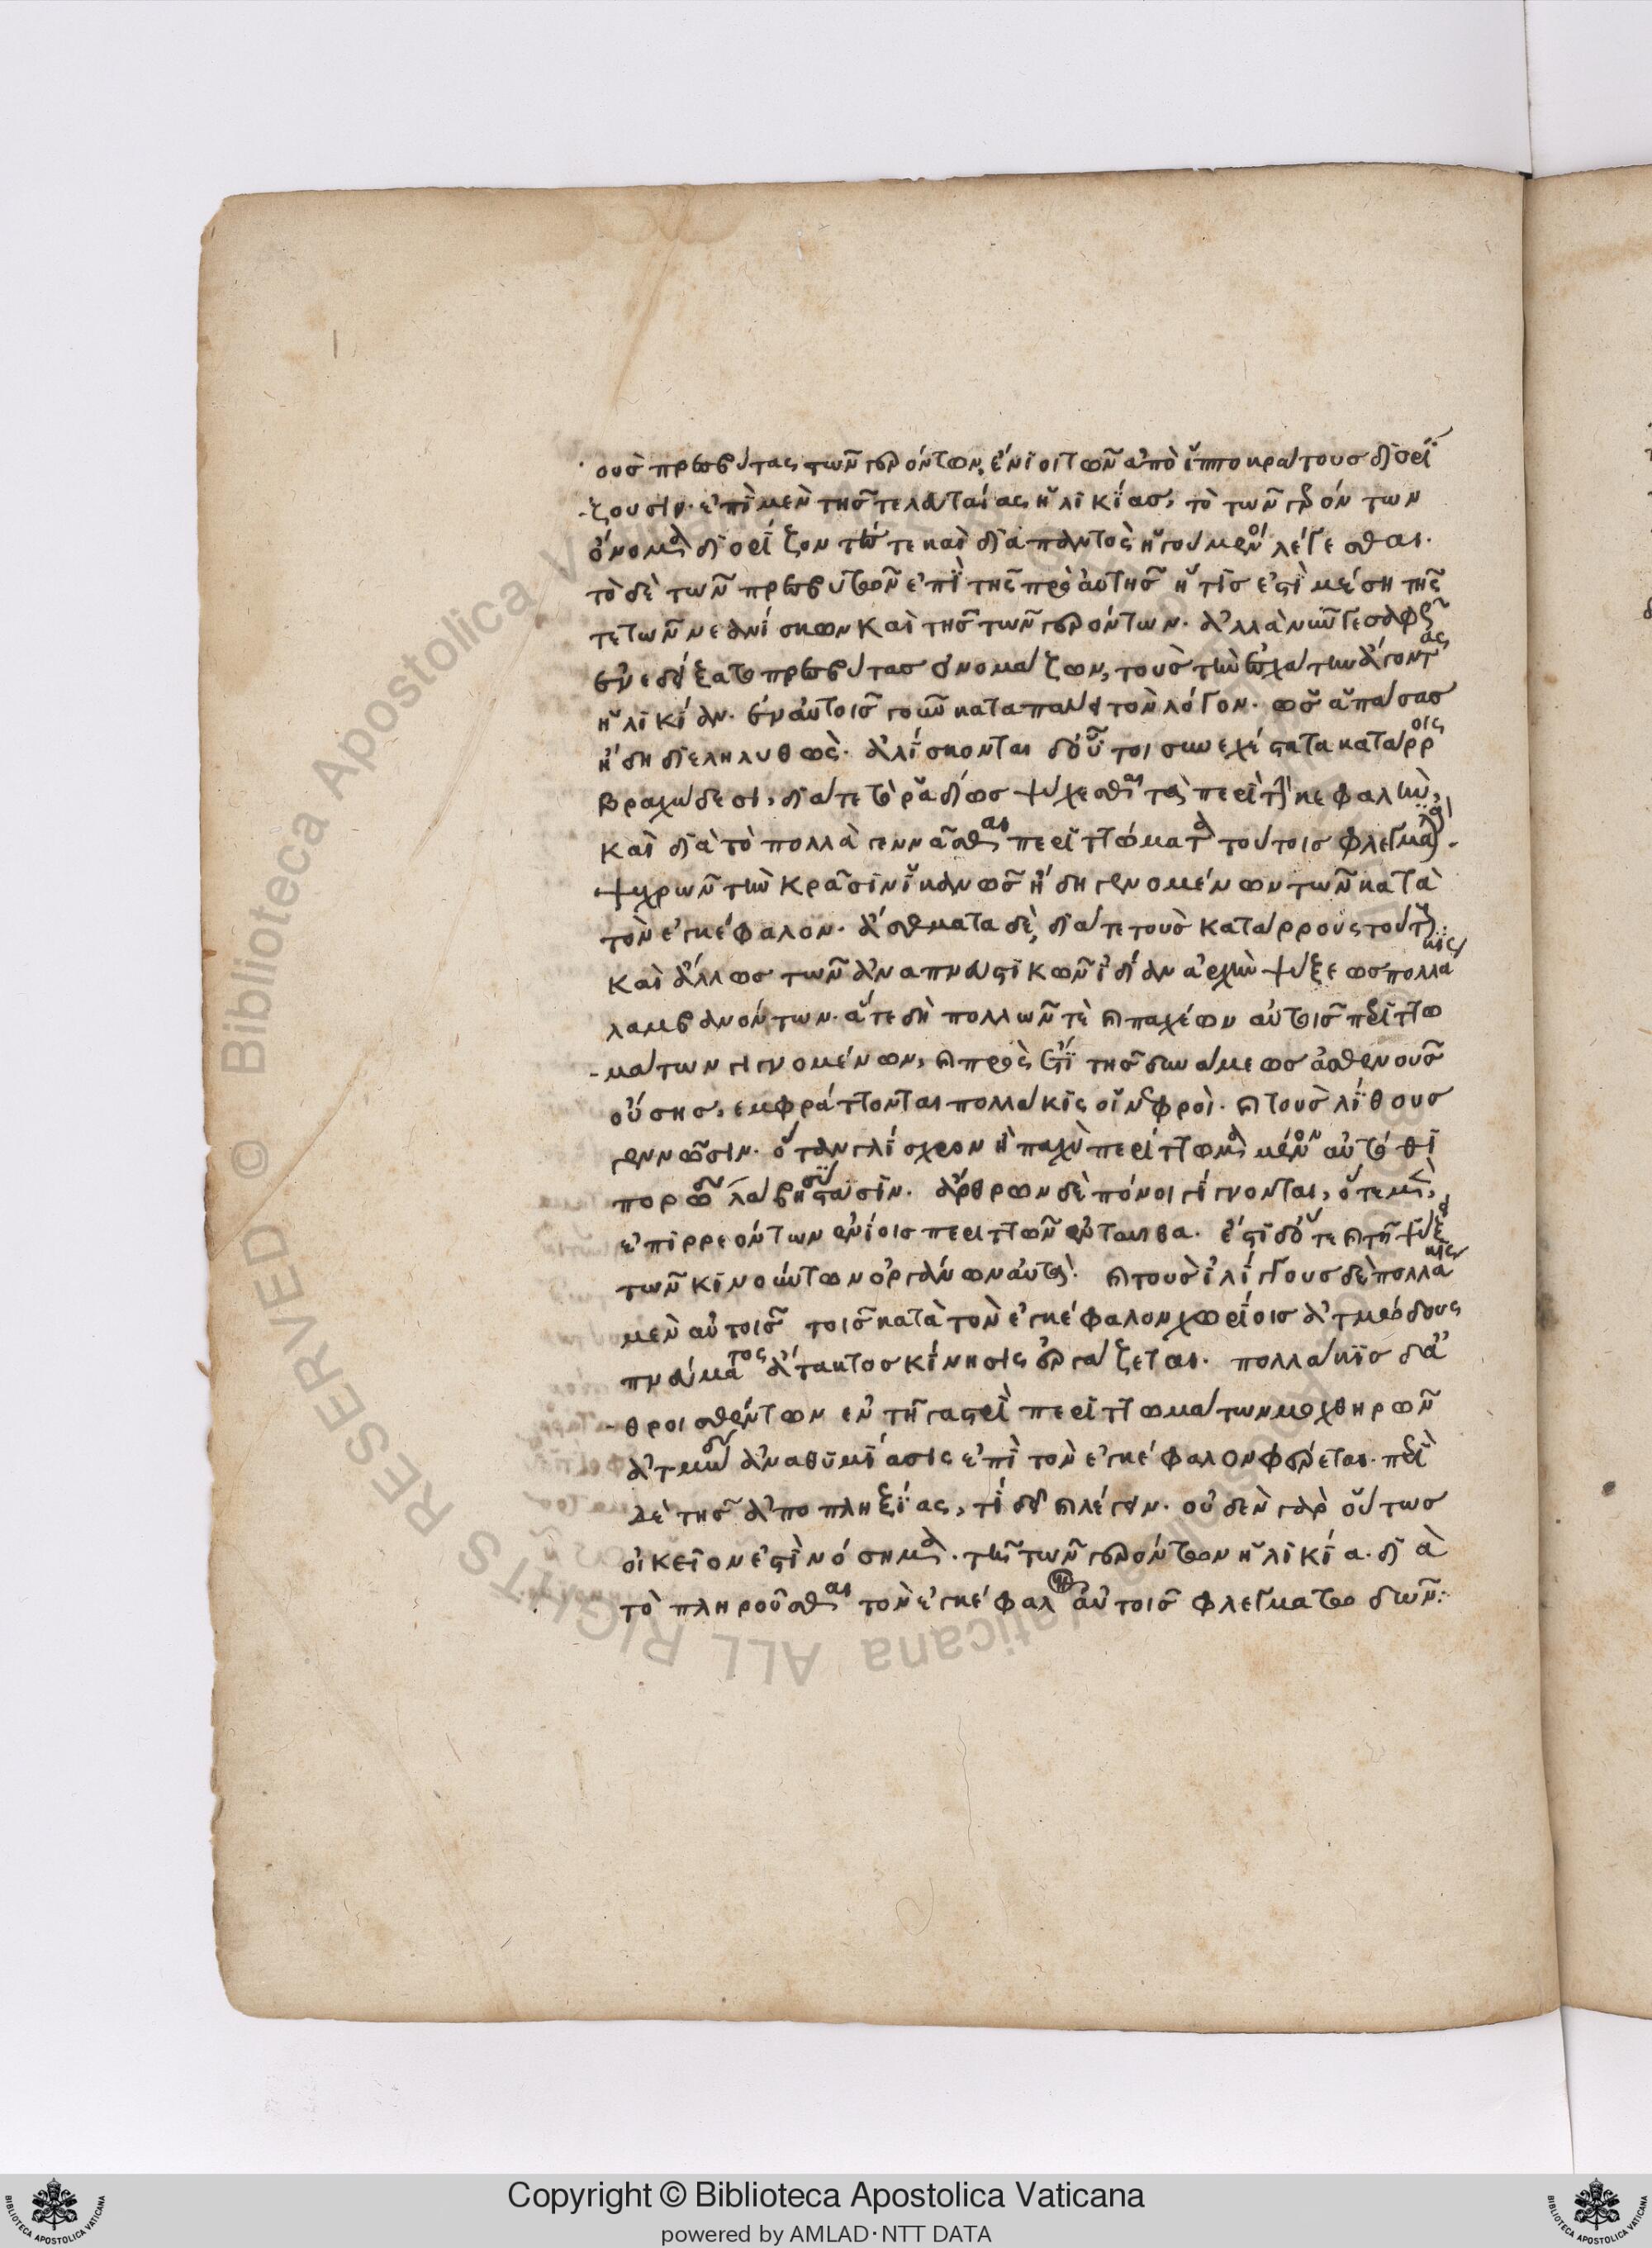 ους πρεσβύτας τῶν γερόντων, ἔνιοι τῶν ἀπὸ ἱπποκράτους διορί
ζουσιν. ἐπὶ μὲν τῆς τελευταίας ἡλικίας, τὸ τῶν γερόντων
ὄνομα διορίζοντές τε καὶ διαπαντὸς ἡγούμενοι λέγεσθαι.
τὸ δὲ τῶν πρεσβυτῶν ἐπὶ τῆς πρὸ αὐτῆς ἥτις ἐστὶ μέση τῆς
τε τῶν νεανίσκων καὶ τῆς τῶν γερόντων. ἀλλὰ νῦν γε σαφῶς
ἐνεδείξατο πρεσβύτας ὀνομάζων, τοὺς τὴν ἐσχάτην ἄγοντας
ἡλικίαν. ἐν αὐτοῖς γοῦν καταπαύει τὸν λόγον. ὡς ἁπάσας
ἤδη διεληλυθώς. ἁλίσκονται δ' οὗτοι συνεχέστατα κατάρροις
βραγχώδεσι, διά τε τὸ ῥαδίως ψύχεσθαι τὰ περὶ τὴν κεφαλήν,
καὶ διὰ τὸ πολλὰ γεννᾶσθαι περιττώματα τούτοις φλεγματικά.
ψυχρῶν τὴν κρᾶσιν ἱκανῶς ἤδη γενομένων τῶν κατὰ
τὸν ἐγκέφαλον. ἄσθματα δὲ, διά τε τοὺς κατάρρους τούτους
καὶ ἄλλως τῶν ἀναπνευστικῶν ἰδίαν ἀρχὴν ψύξεως πολλάκις
λαμβανόντων. ἅτε δὴ πολλῶν τὲ καὶ παχέων αὐτοῖς περιττω
μάτων γιγνομένων, καὶ πρὸς ἔτι τῆς δυνάμεως ἀσθενοῦς
οὔσης, ἐμφράττονται πολλάκις οἱ νεφροί. καὶ τοὺς λίθους
γεννῶσιν. ὅταν γλίσχρον ἢ παχὺ περίττωμα μένον αὐτόθι
πόρων λάβῃ σύστασιν. ἄρθρων δὲ πόνοι γίγνονται, ὁτὲ μὲν,
ἐπιρρεόντων ἐνίοις περιττῶν ἐνταῦθα. ἔστι δ' ὅτε καὶ τῇ ψύξει
τῶν κινούντων ὀργάνων αὐτά. καὶ τοὺς ἰλίγγους δὲ πολλάκις
μὲν αὐτοῖς τοῖς κατὰ τὸν ἐγκέφαλον χωρίοις ἀτμώδους
πνεύματος ἄτακτος κίνησις ἐργάζεται. πολλάκις δ' ἀ
θροισθέντων ἐν τῇ γαστρὶ περιττωμάτων μοχθηρῶν
ἀτμῶν ἀναθυμίασις ἐπὶ τὸν ἐγκέφαλον φέρεται. περὶ
δὲ τῆς ἀποπληξίας, τί δεῖ καὶ λέγειν. οὐδὲν γὰρ οὕτως
οἰκεῖον ἐστὶ νόσημα. τῇ τῶν γερόντων ἡλικία. διὰ
τὸ πληροῦσθαι τὸν ἐγκέφαλον αὐτοῖς φλεγματωδῶν: